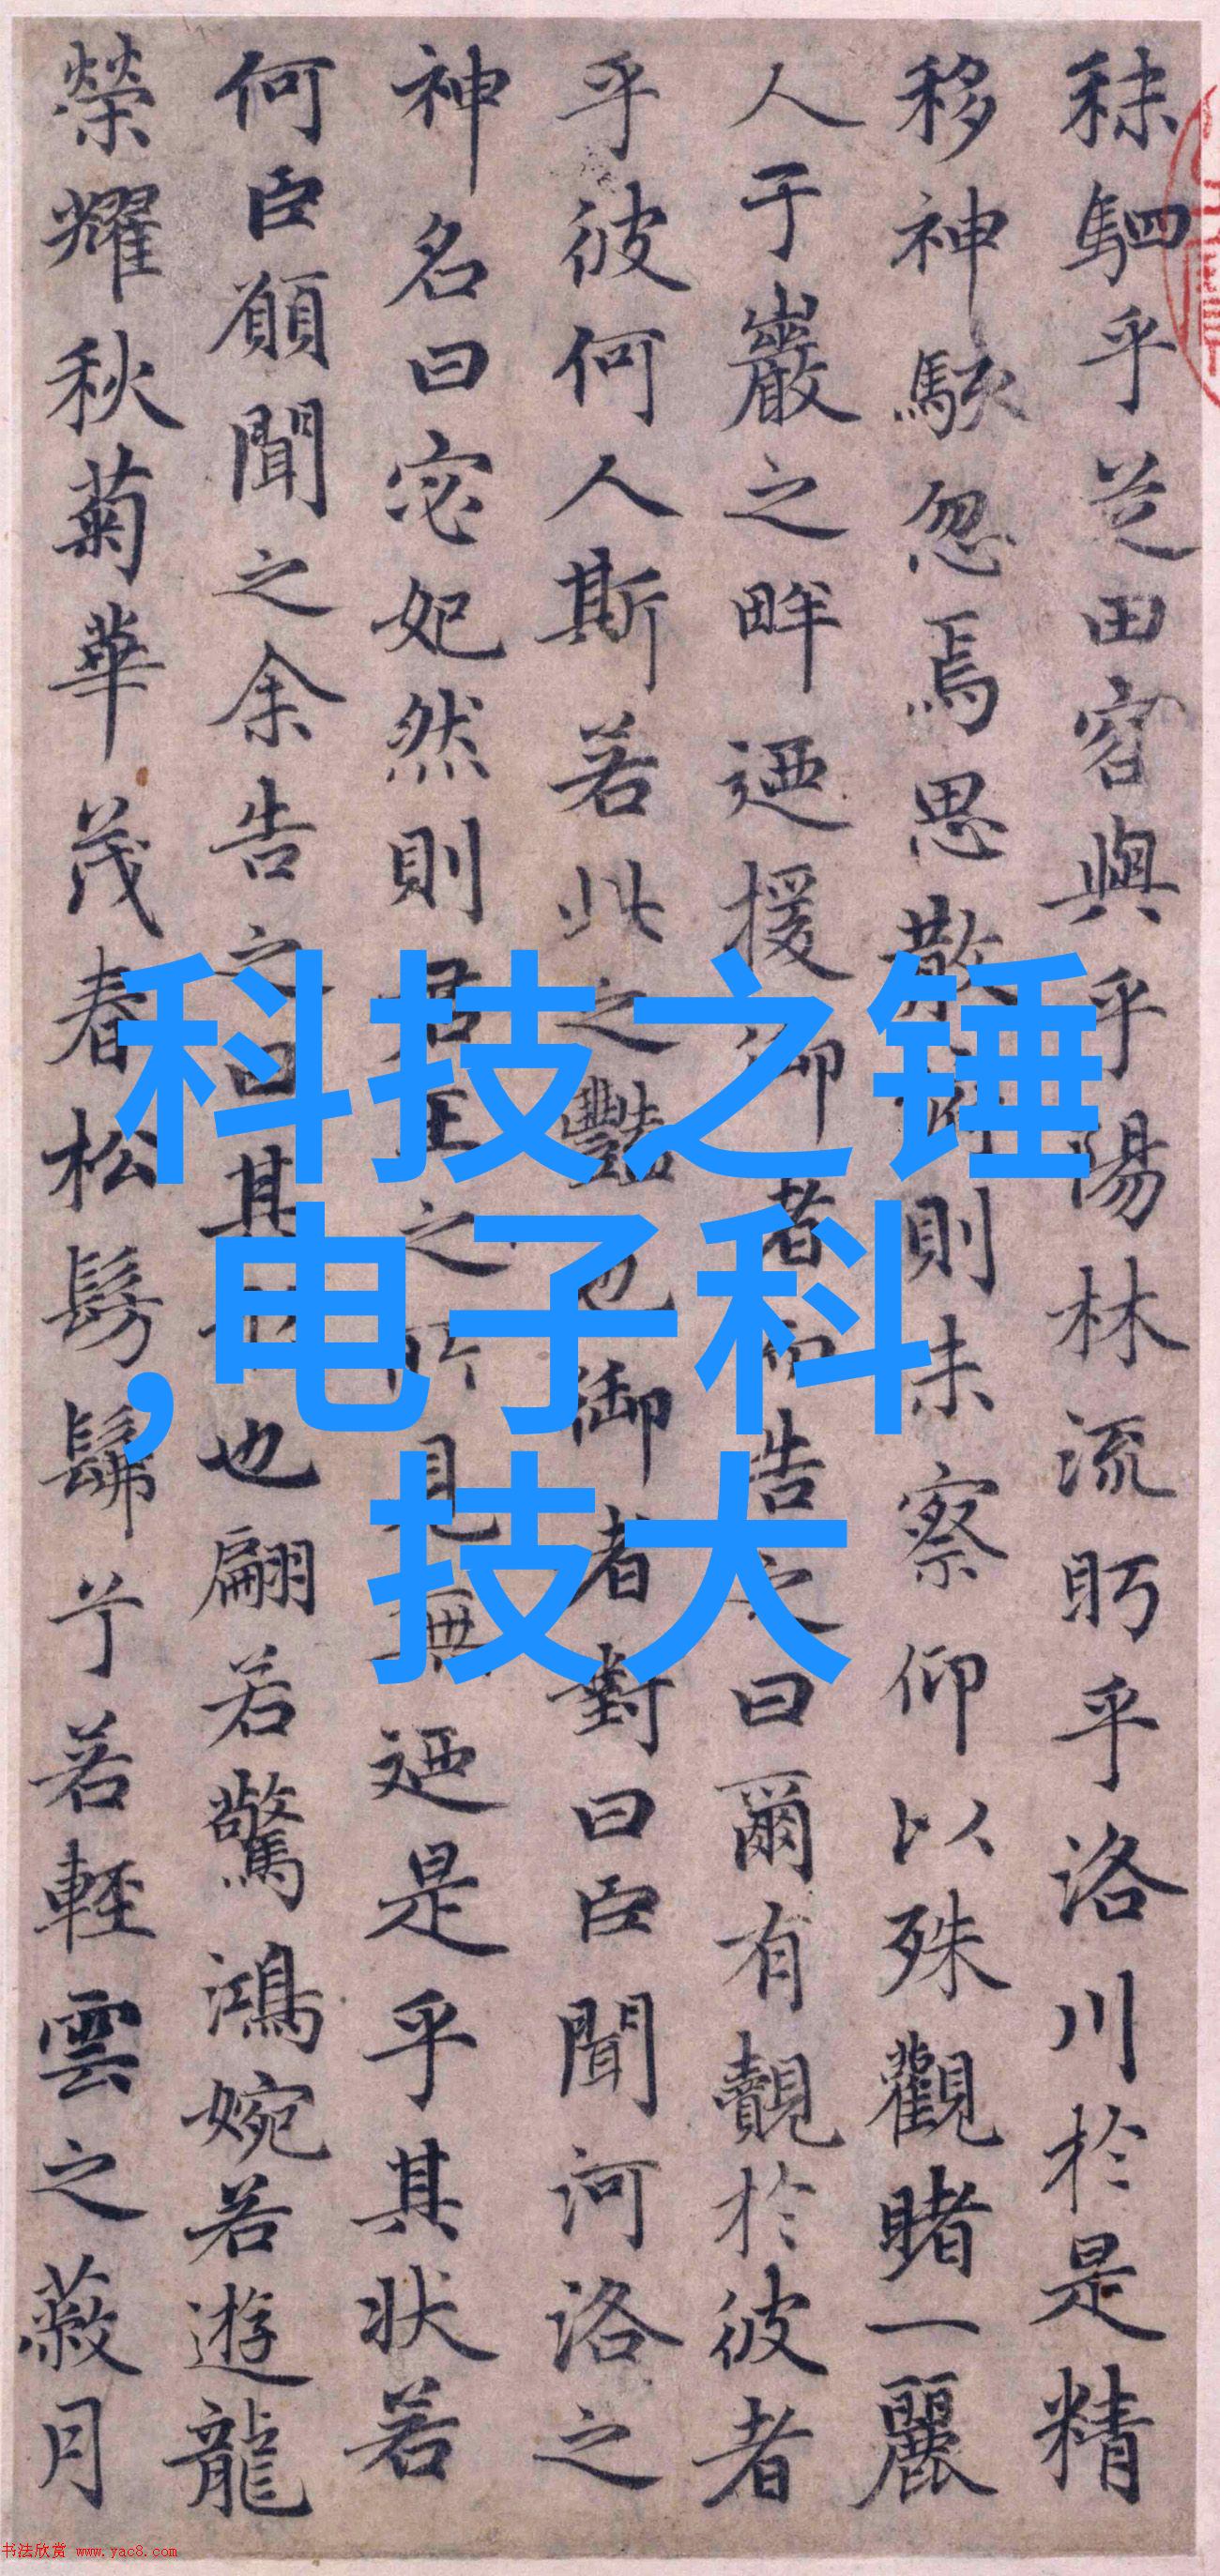 秣駟乎芝田容與乎陽林流眄乎洛川於是精
移神駭忽焉思散則未察仰以殊觀睹一麗
人于巖之畔迺援御者而告之曰爾有覿於彼者
乎彼何人斯若此之豔也御者對曰臣聞河洛之
神名曰宓妃然則君王之所見無迺是乎其狀若
何臣願聞之余告之曰其也翩若驚鴻婉若遊龍
榮耀秋菊華茂春松髣髴兮若輕雲之蔽月
科技之锤
,电子科
技大
书法欣赏 www.yac8.com